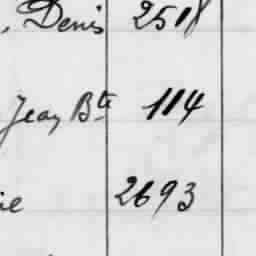 , Denis 2518
Jean Bte 114
ie 2693